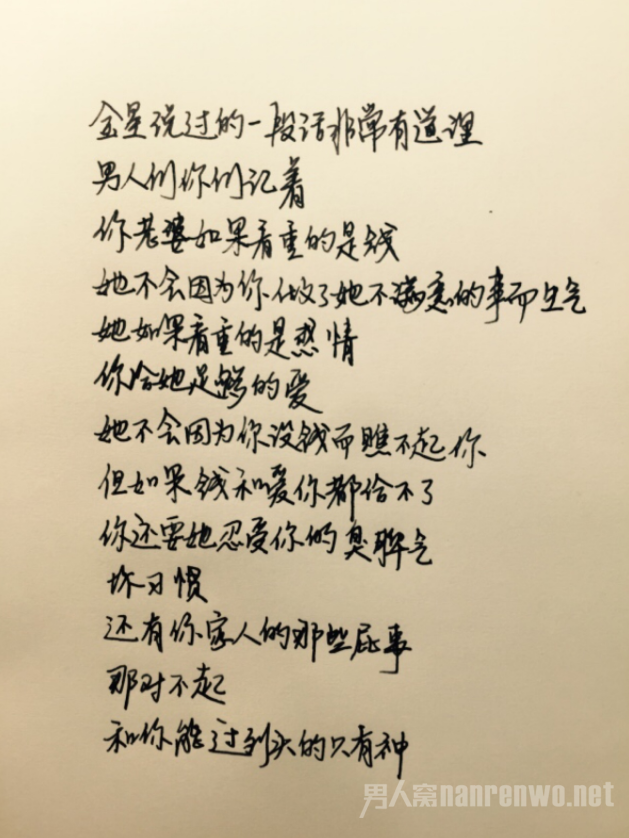 金星说过的一段话非常有道理
男人们你们记着
你老婆如果看重的是钱
她不会因为你做了她不满意的事而生气
她如果看重的是感情
你给她足够的爱
她不会因为你没钱而瞧不起你
但如果钱和爱你都给不了
你还要她忍受你的臭脾气
坏习惯
还有你家人的那些屁事
那对不起
和你能过到头的只有神
男人窝nanrenwo.net